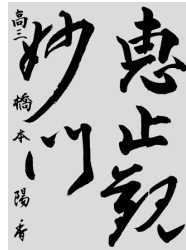 恵止観
妙門
高三 橋本陽香